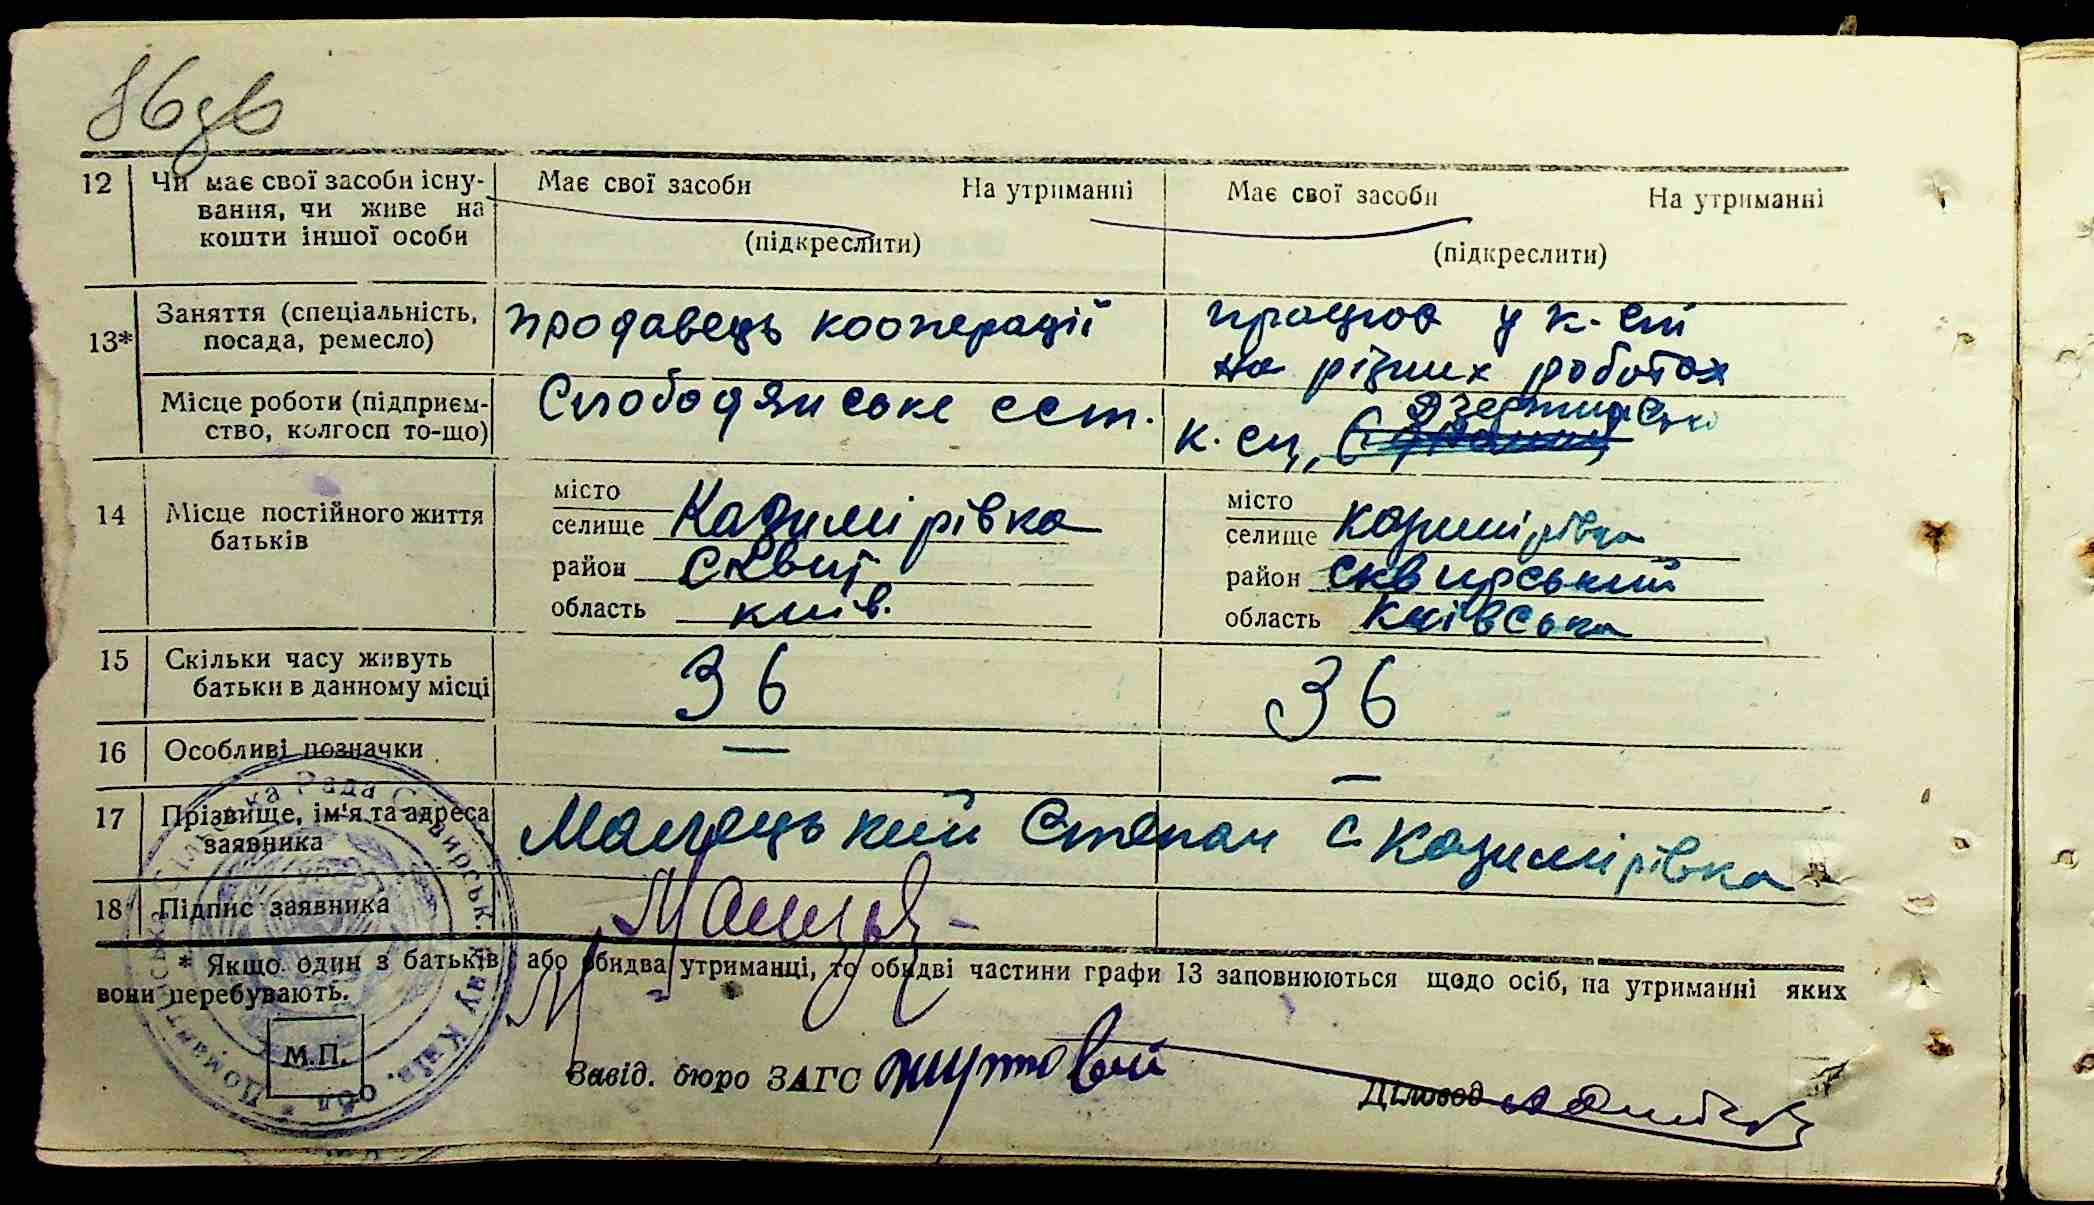 86 зв
12 Чи має свої засоби існу-
вання, чи живе на
кошти іншої особи
Має свої засоби На утриманні
(підкреслити)
Має свої засоби На утриманні
(підкреслити)
13* Заняття (спеціальність,
посада, ремесло)
продавець кооперації
працюв у к-сп
на різних роботах
Місце роботи (підприєм-
ство, колгосп то-що)
Слободянське сст.
14 Місце постійного життя
батьків
місто
селище Казимірівка
район Сквир
область київ.
місто
селище Казимірівка
район Сквирський
область Київська
15 Скільки часу живуть
батьки в данному місці
36
36
16 Особливі позначки
—
—
17 Прізвище, ім'я та адреса
заявника
Степан с. Казимірівка
18 Підпис заявника
* Якщо один з батьків або обидва утриманці, то обидві частини графи 13 заповнюються щодо осіб, на утриманні яких
вони перебувають.
М.П.
Завід. бюро ЗАГС
Діловод